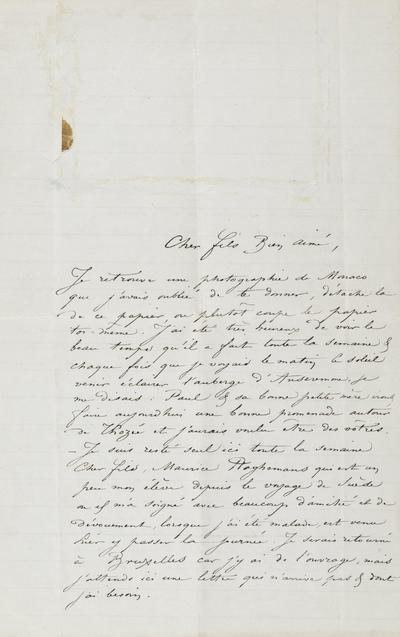 Cher fils Bien aimé,
Je retrouve une photographie de Monaco
que j'avais oublié de te donner, détache la
de ce papier, ou plutôt coupe le papier
toi-même. J'ai été très heureux de voir le
beau temps qu'il a fait toute la semaine &
chaque fois que je voyais le matin le soleil
venir éclairer l'auberge d'Anseremme, je
me disais. Paul & sa bonne petite mère iront
faire aujourd'hui une bonne promenade autour
de Thozée et j'aurais voulu être des vôtres.
— Je suis resté seul ici toute la semaine
Cher fils, Maurice Haghemans qui est un
peu mon élève depuis le voyage de Suède
ou il m'a soigné avec beaucoup d'amitié et de
dévouement, lorsque j'ai été malade, est venu
hier y passer la journée. Je serais retourné
à Bruxelles car j'y ai de l'ouvrage, mais
j'attends ici une lettre qui n'arrive pas & dont
j'ai besoin.